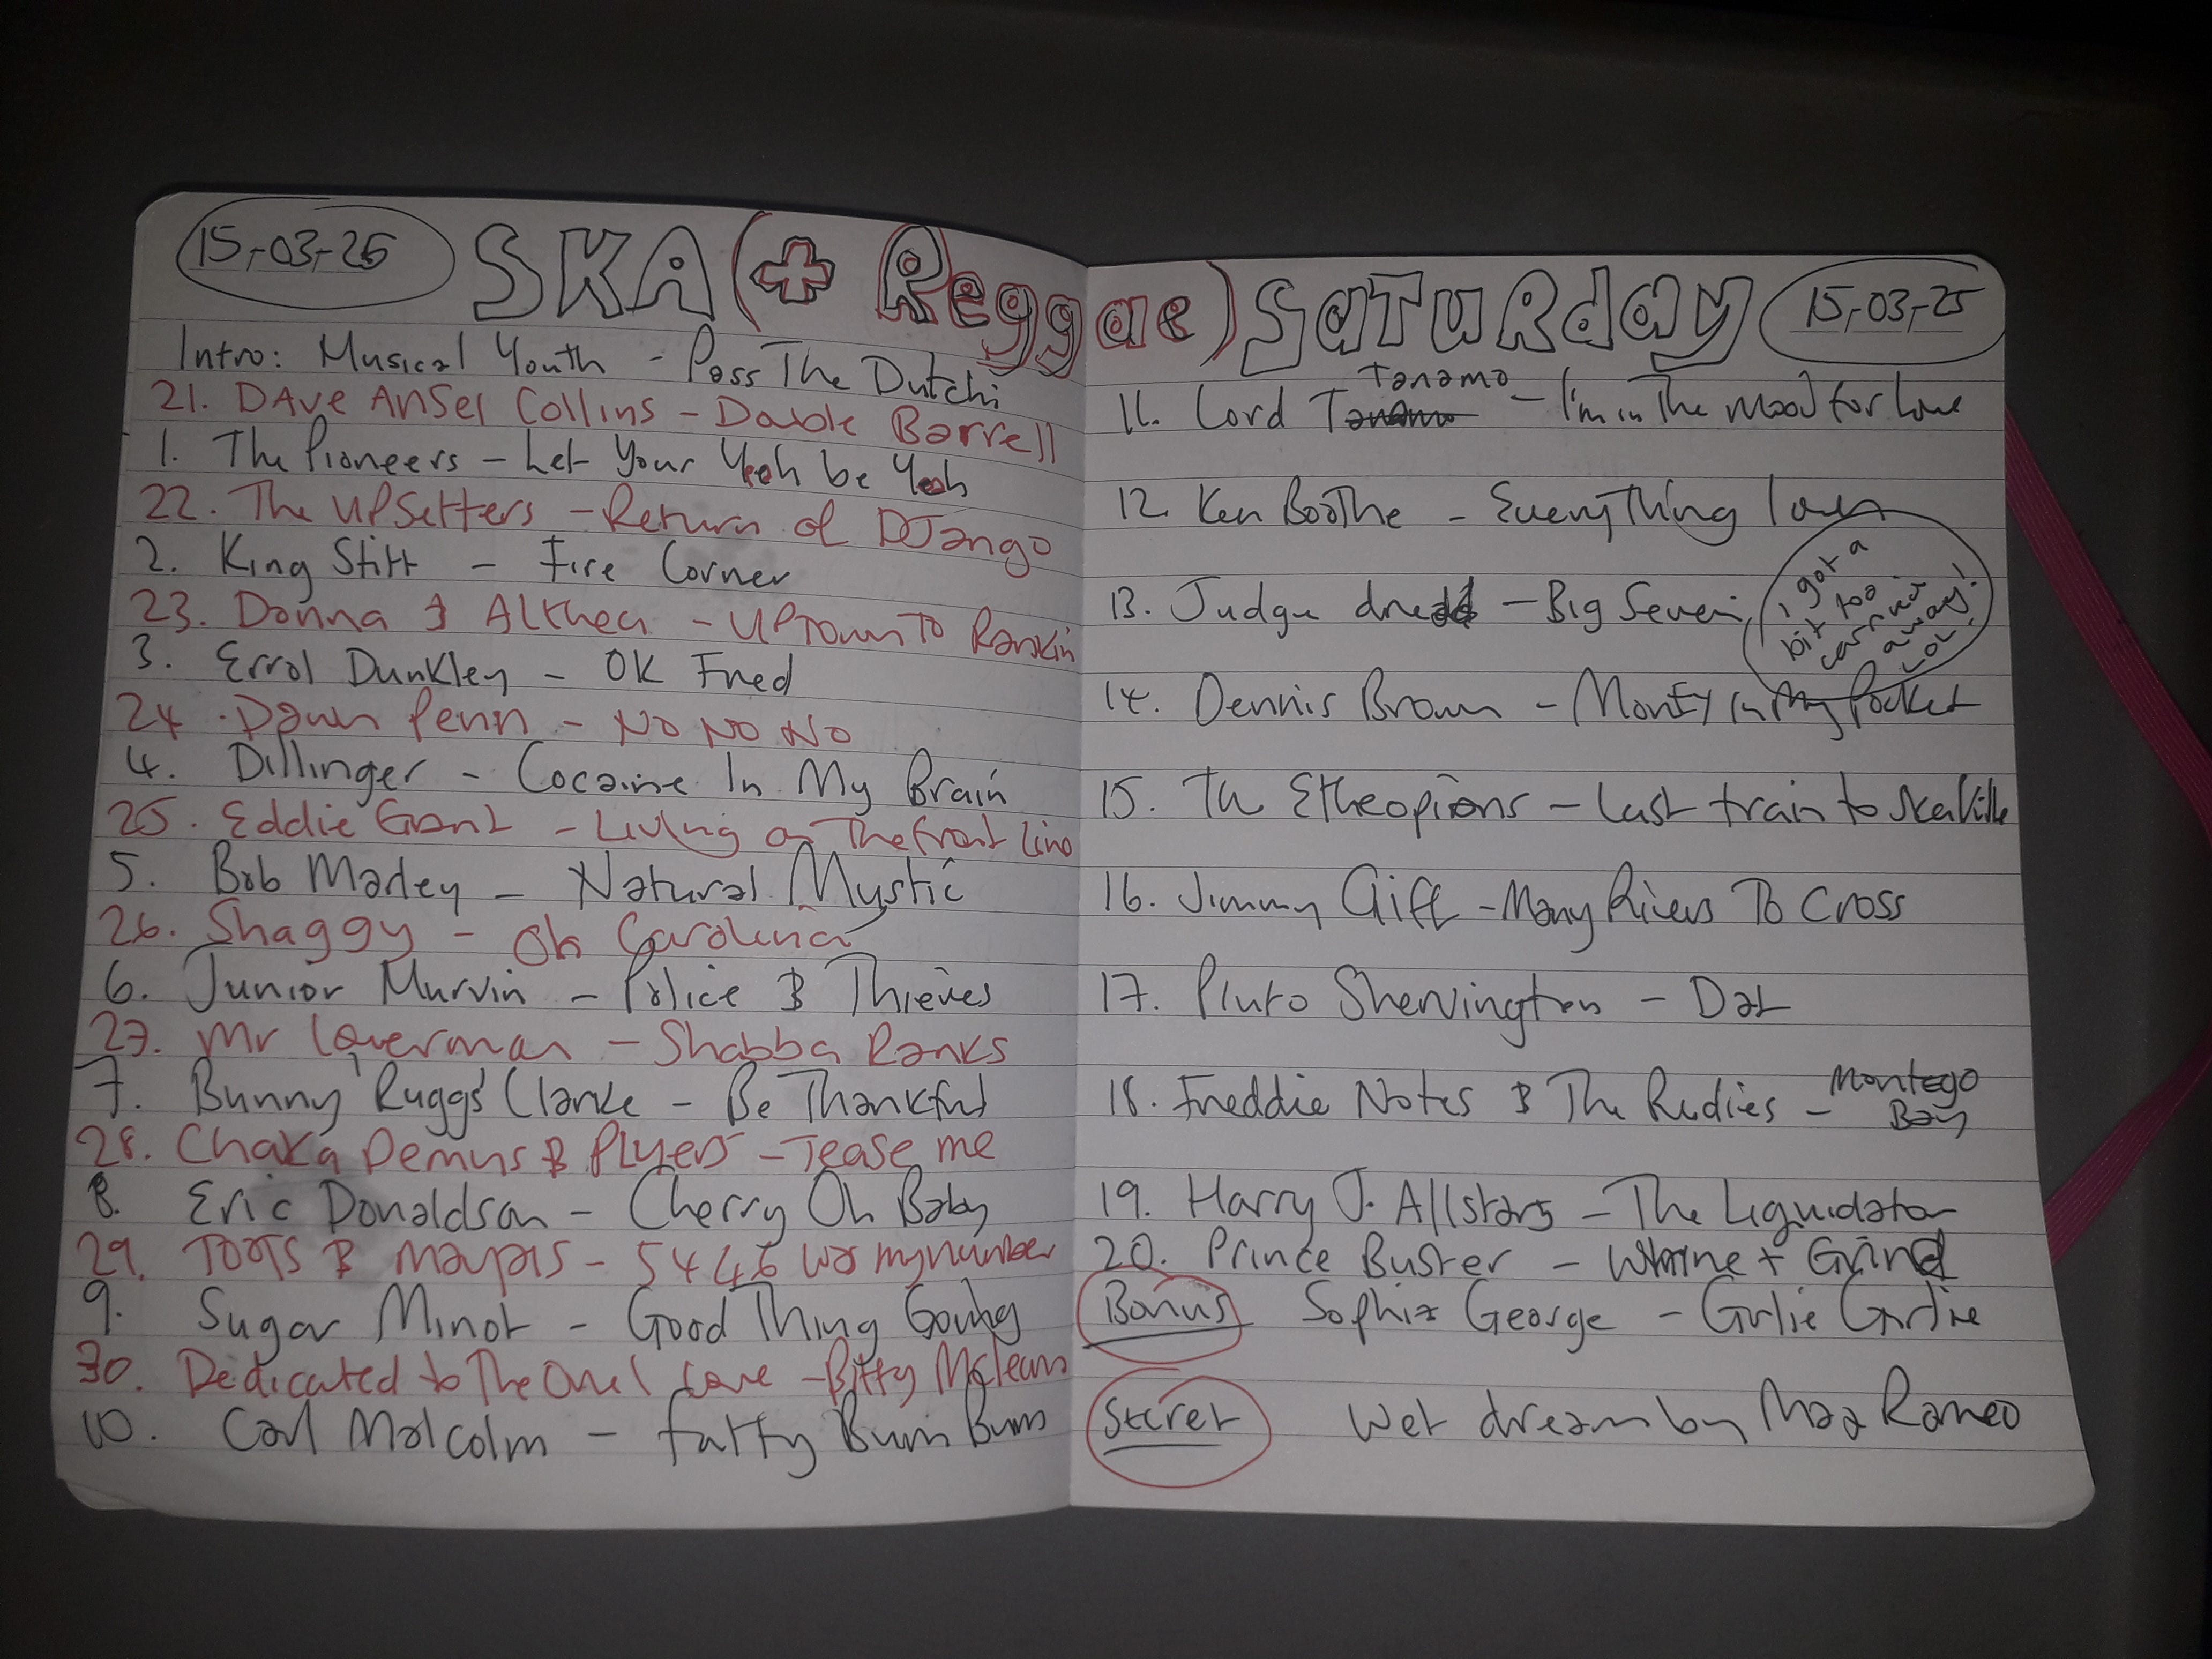 15-03-25 SKA (+ Reggae) Saturday 15-03-25
Intro: Musical Youth - Pass The Dutchi
21. DAve AnSel Collins - Double Barrell
1. The Pioneers - Let Your Yeah be Yeah
22. The UPSetters - Return of DJango
2. King Stitt - Fire Corner
23. Donna & Althea - UPTown To Rankin
3. Errol Dunkley - OK Fred
24. Dawn Penn - No No No
4. Dillinger - Cocaine In My Brain
25. Eddie Grant - Living on The front Line
5. Bob Marley - Natural Mystic
26. Shaggy - Oh Carolina
6. Junior Murvin - Police & Thieves
27. Mr Loverman - Shabba Ranks
7. Bunny 'Ruggs' Clarke - Be Thankful
28. Chaka Demus & Plyers - Tease me
8. Eric Donaldson - Cherry Oh Baby
29. Toots & Maytals - 5446 was my number
9. Sugar Minot - Good Thing Going
30. Dedicated to The One I Love - Bitty Mclean
10. Carl Malcolm - Fatty Bum Bum
11. Lord Tanamo - I'm in The mood for Love
12. Ken Boothe - Everything I own
i got a
bit too
carried
away!
LOL.
13. Judge dredd - Big Seven
14. Dennis Brown - Money In My Pocket
15. The Etheopians - Last train to Skaville
16. Jimmy Cliff - Many Rivers To Cross
17. Pluto Shervington - Dat
18. Freddie Notes & The Rudies - Montego Bay
19. Harry J. Allstars - The Liquidator
20. Prince Buster - Whine + Grind
Bonus Sophia George - Girlie Girlie
Secret Wet dream by Max Romeo